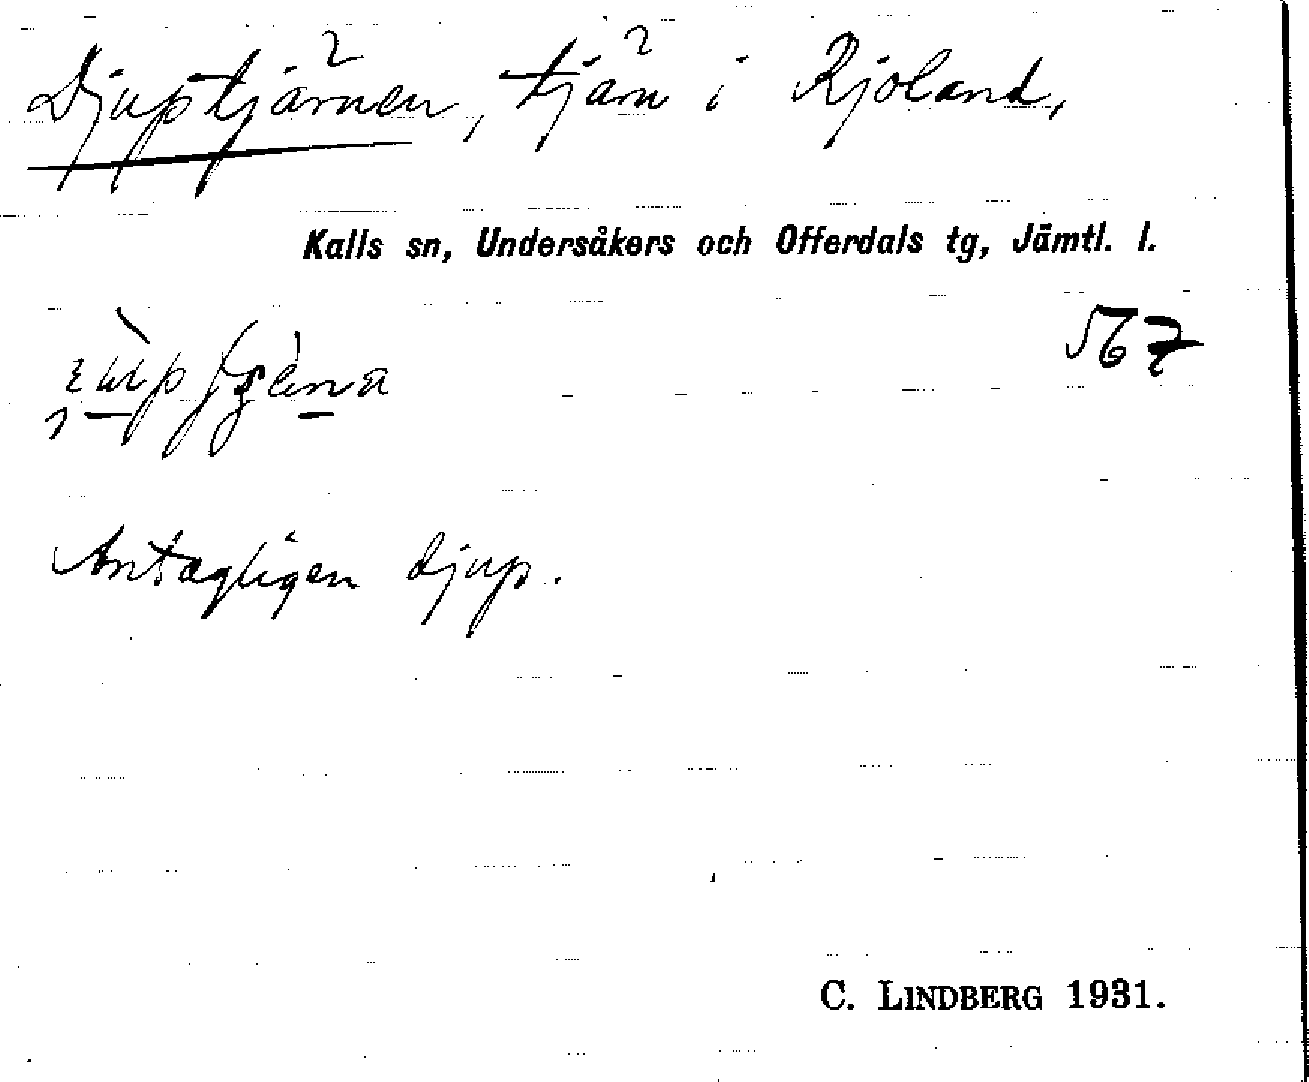 Djuptjärnen, tjärn i Rjoland,
Kalls sn, Undersåkers och Offerdals tg, Jämtl. l.
567
Antagligen djup.
C. LINDBERG 1931.